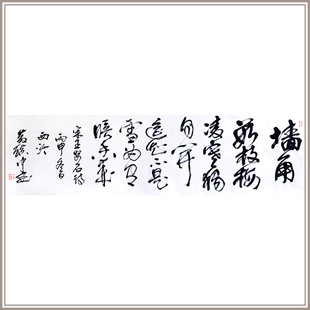 墙角
数枝梅
凌寒独
自开
遥知不是
雪为有
暗香来
宋王安石诗
丙申冬日